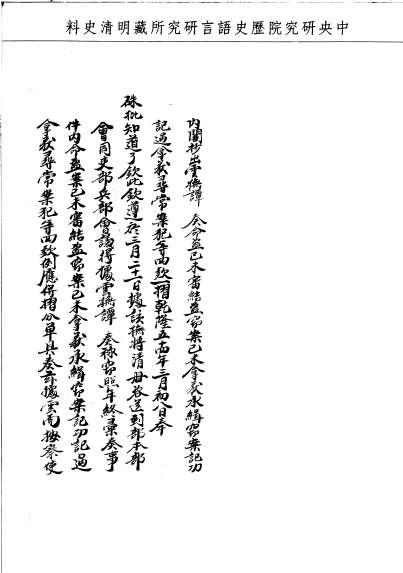 中央研究院歷史語言研究所藏明清史料
內閣抄出雲撫譚 奏命盜已未審結盜竊案已未拿獲承緝竊案記功
記過拿獲尋常案犯等四款一摺乾隆五十四年三月初八日奉
硃批知道了欽此欽遵於三月二十一日據該撫將清冊咨送到部本部
會同吏部兵部會議得據雲撫譚 奏稱竊照年終彙奏事
件內命盜案已未審結盜竊案已未拿獲承緝竊案記功記過
拿獲尋常案犯等四款例應併摺分單具奏茲據雲南按察使